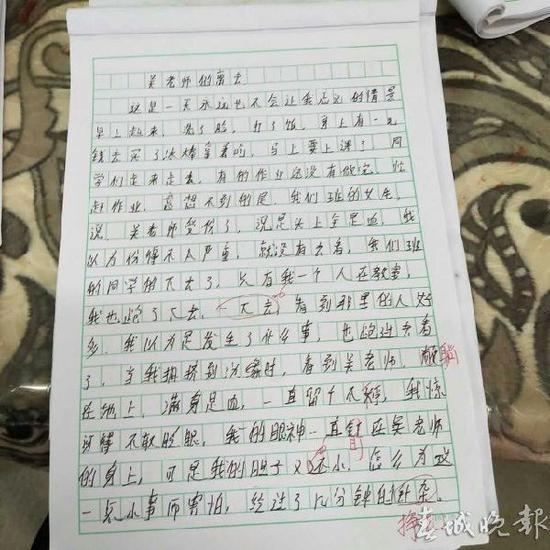 吴老师的离去
这是一天永远也不会让我忘记的情景
早上起来，洗了脸，打了饭，身上有一元
钱去买了冰棒拿着吃，马上要上课了，同
学们走来走去，有的作业还没有做完，忙
赶作业，意想不到的是，我们班的女生，
说，吴老师受伤了，说是头上全是血，我
以为伤得不太严重，就没有去看，我们班
的同学的下去了，只有我一个人在教室，
我也跑了下去，一下去，看到那里的人好
多，我以为是发生了什么事，也跑过去看
了，当我拥挤到边缘时，看到吴老师，躺
在地上，满身是血，一直留个不短，我惊
讶得不敢眨眼，我的眼神一直盯在吴老师
的身上，可是我的胆子又还小，怎么为这
一点小事而害怕，经过了几分钟的
春城晚报